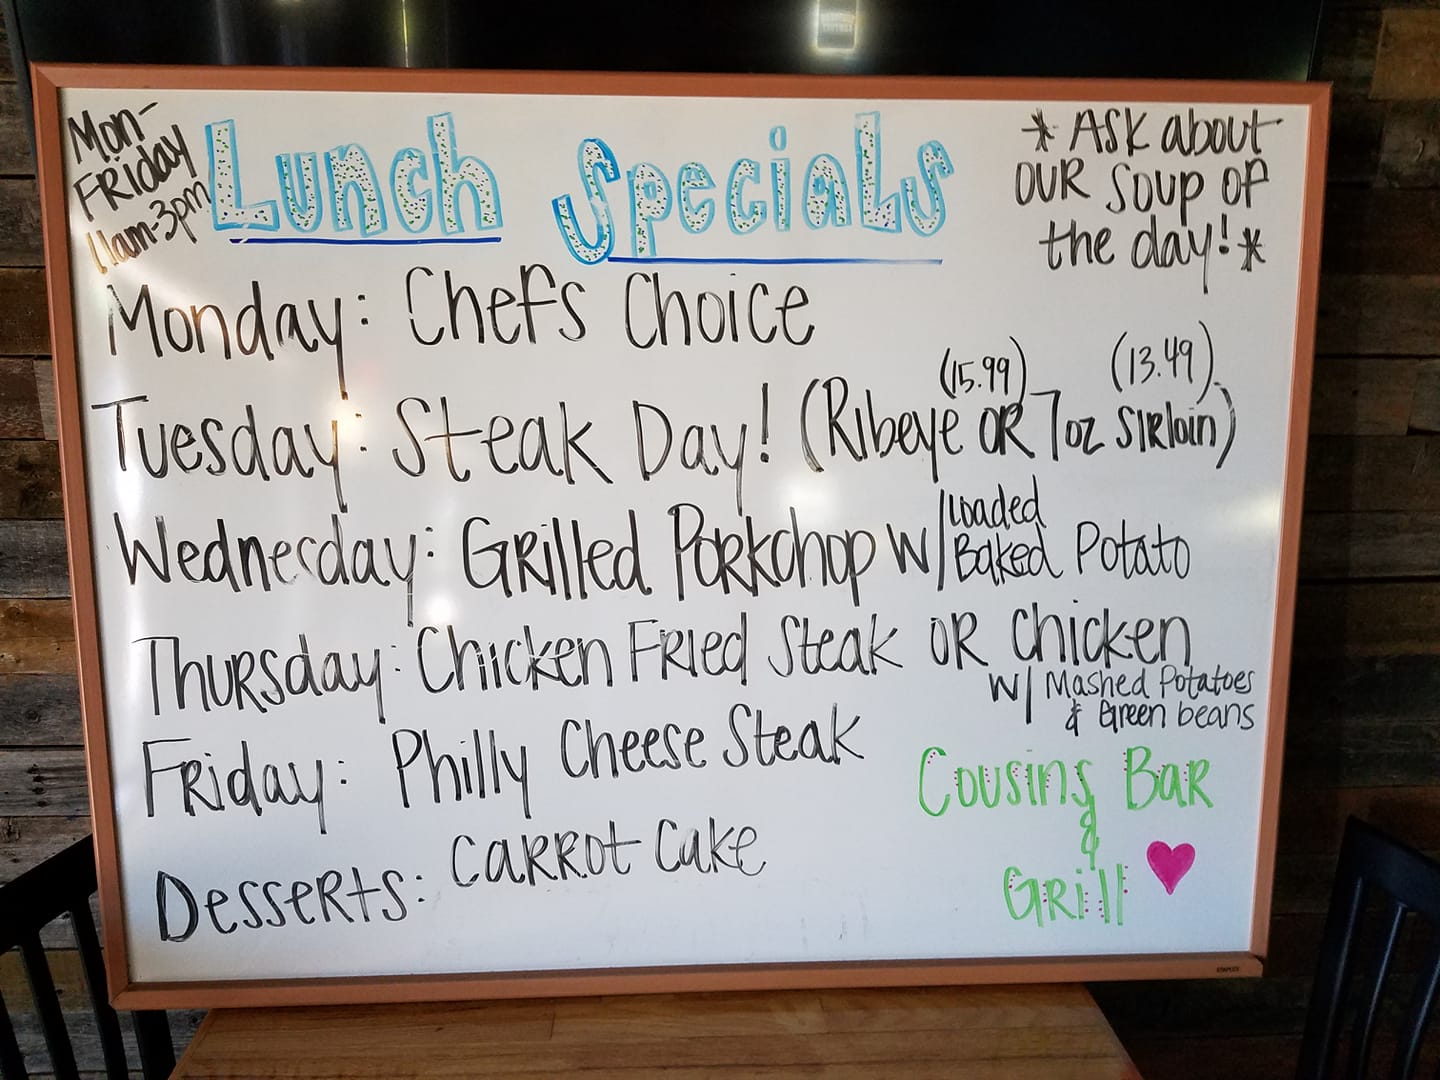 Mon-
Friday
11am-3pm
Lunch Specials
* Ask about
our soup of
the day! *
Monday: Chefs Choice
(15.99) (13.49)
Tuesday: Steak Day! (Ribeye or 7oz Sirloin)
Wednesday: Grilled Porkchop w/ Loaded
Baked Potato
Thursday: Chicken Fried Steak or Chicken
w/ Mashed Potatoes
& Green beans
Friday: Philly Cheese Steak
Desserts: Carrot Cake
Cousins Bar
&
Grill
STAPLES